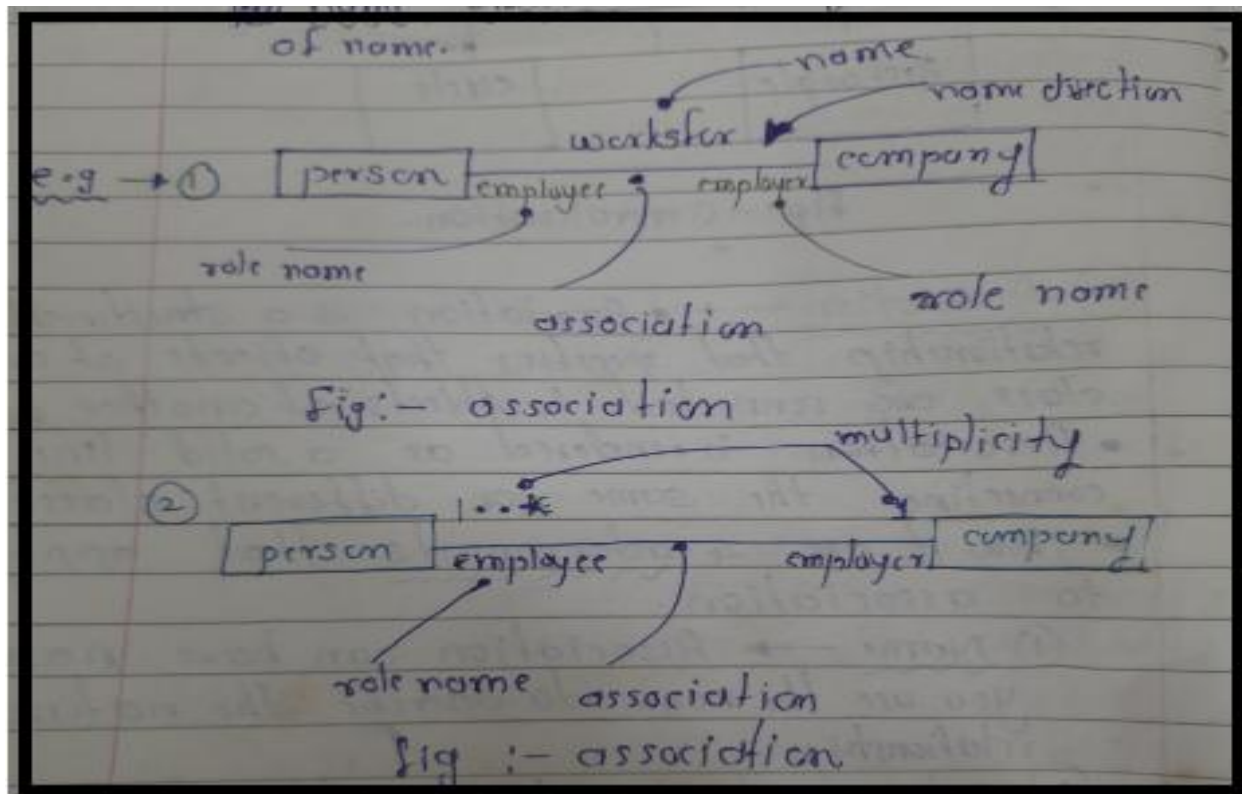 of name.
name
name direction
worksfor
e.g → ① person company
employee employer
role name
role name
association
fig:- association
multiplicity
② 1..* 1
person company
employee employer
role name association
fig :- association